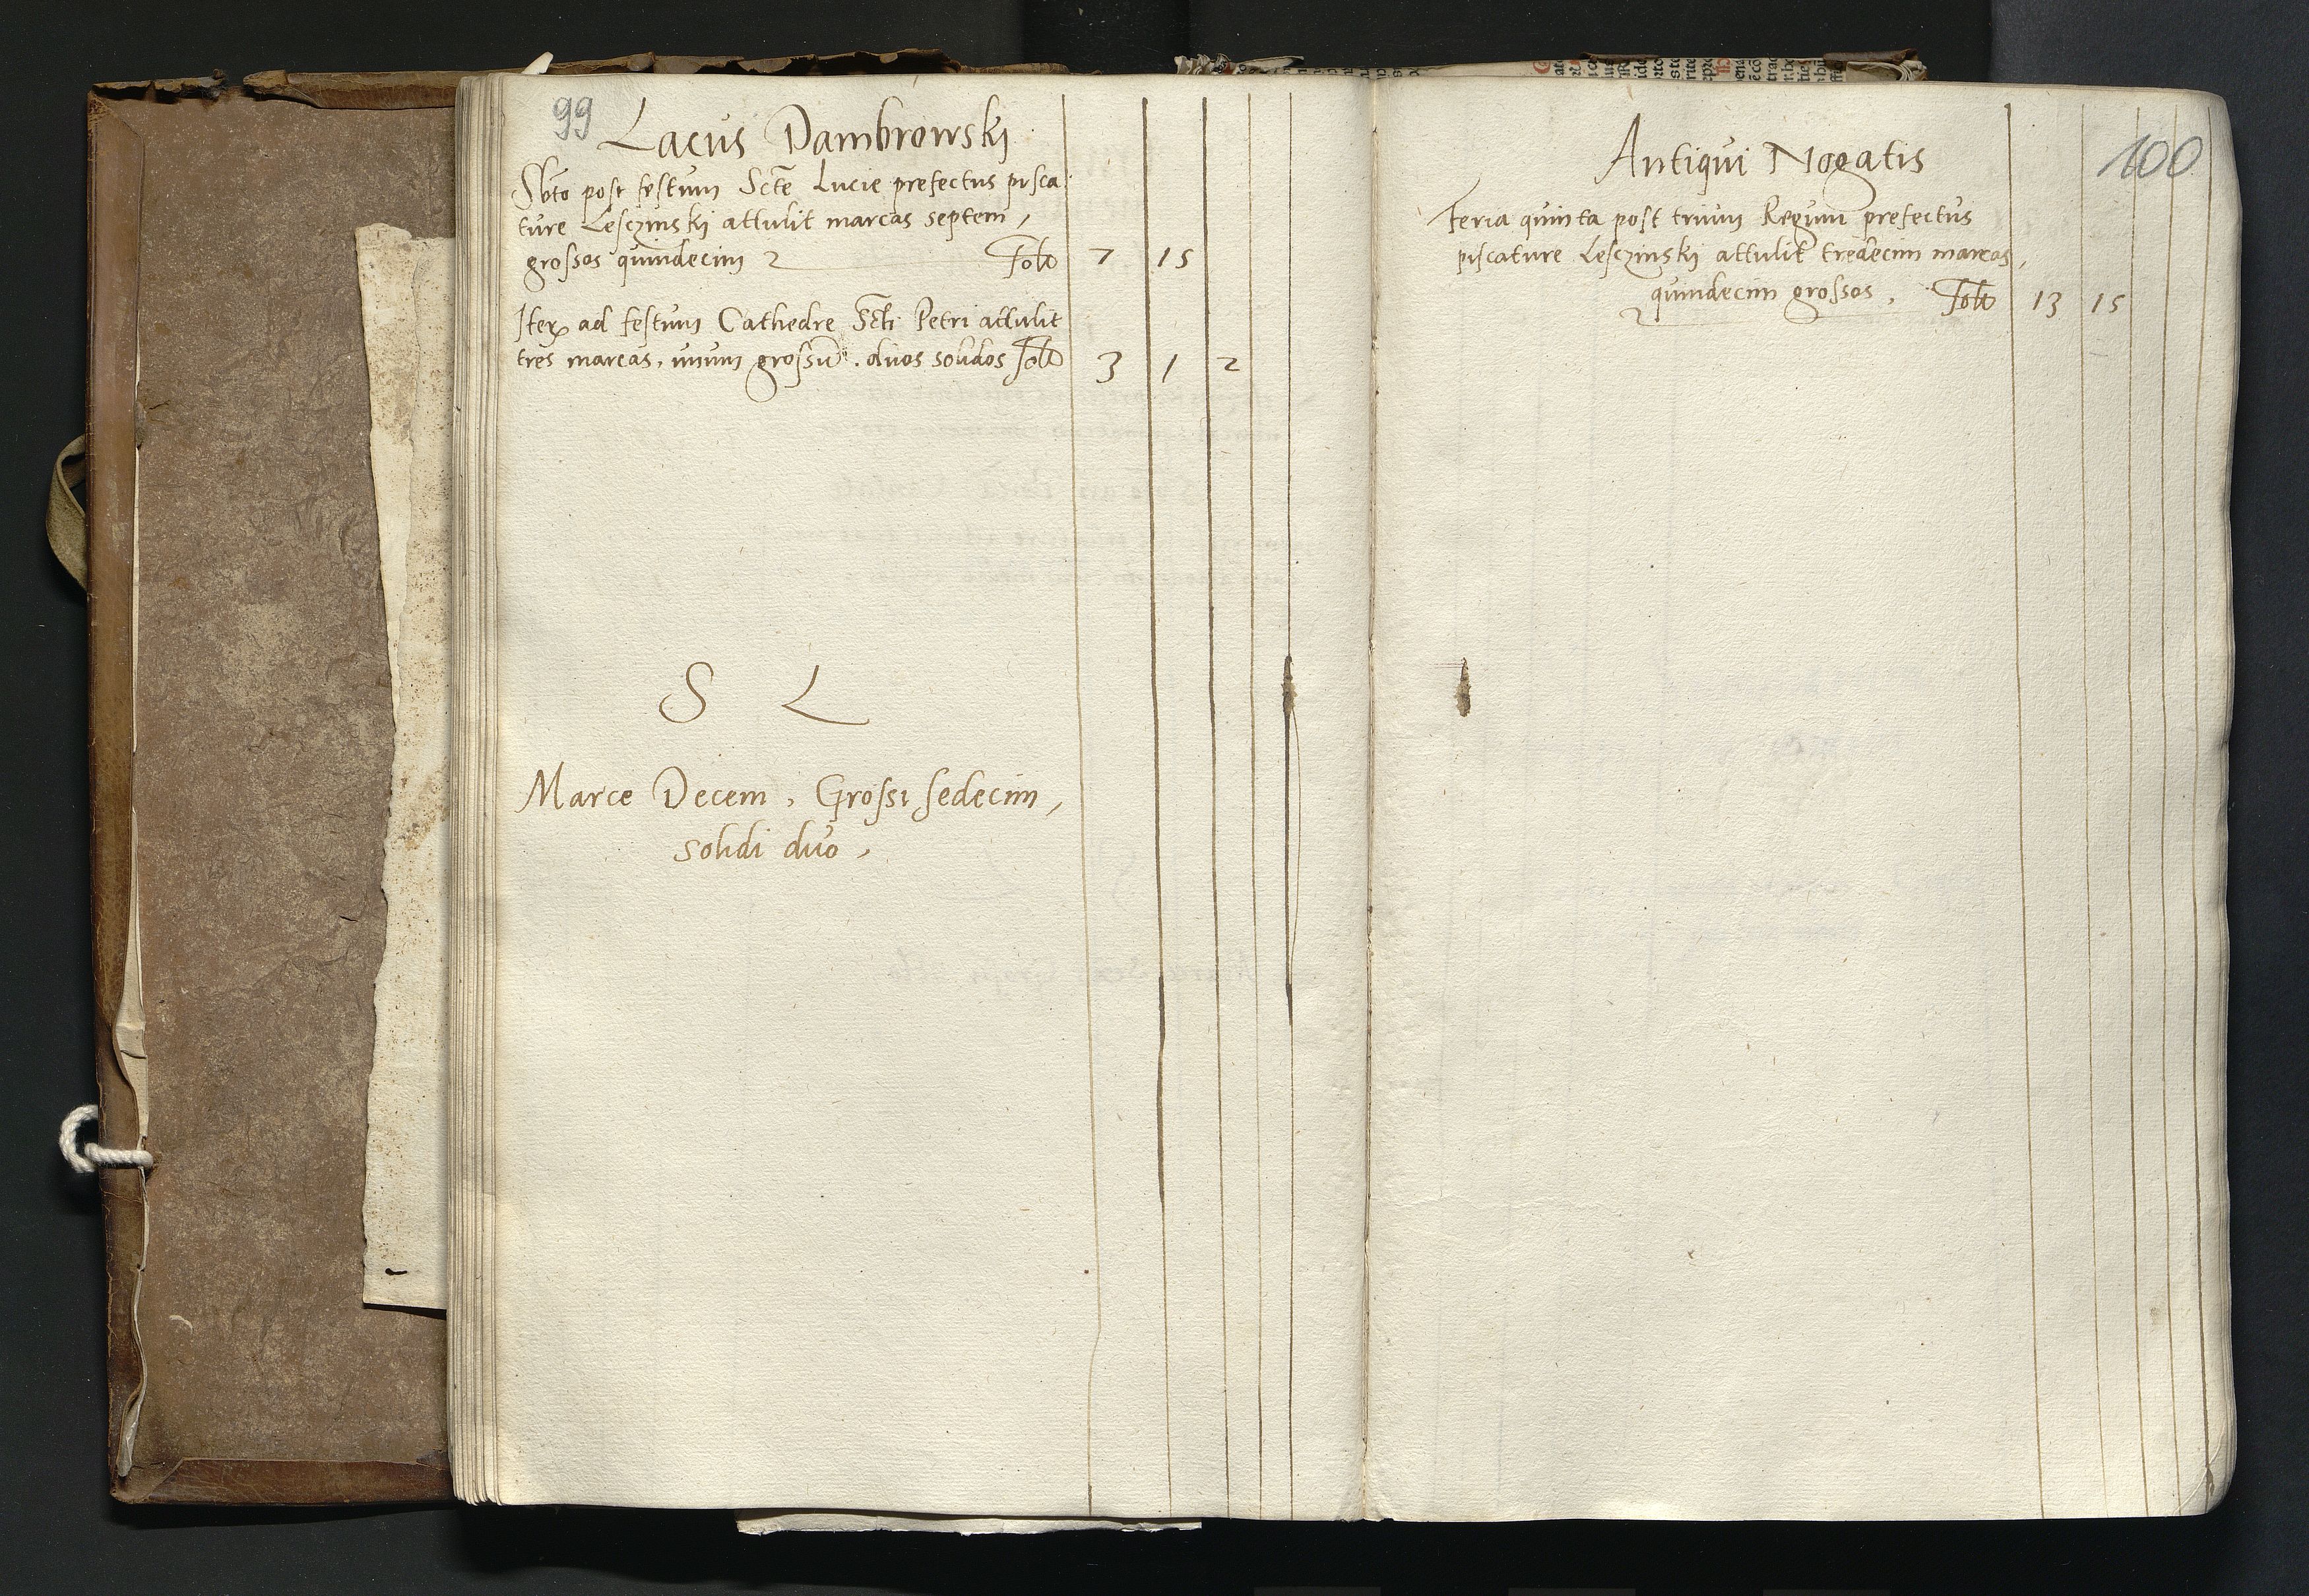 99
Lacus Dambrowski
Sbto post festum Scte Lucie prefectus pisca
ture Lesczinski attulit marcas septem,
grossos quindecim 7 15
Iter ad festum Cathedre Scti Petri attulit
tres marcas, unum grossu. duos solidos 3 1 2
S L
Marce Decem, Grossi sedecim,
solidi duo,
100
Antiqui Nogatis
feria quinta post trium Regum prefectus
piscature Lesczinski attulit tredecim marcas,
quindecim grossos, 13 15